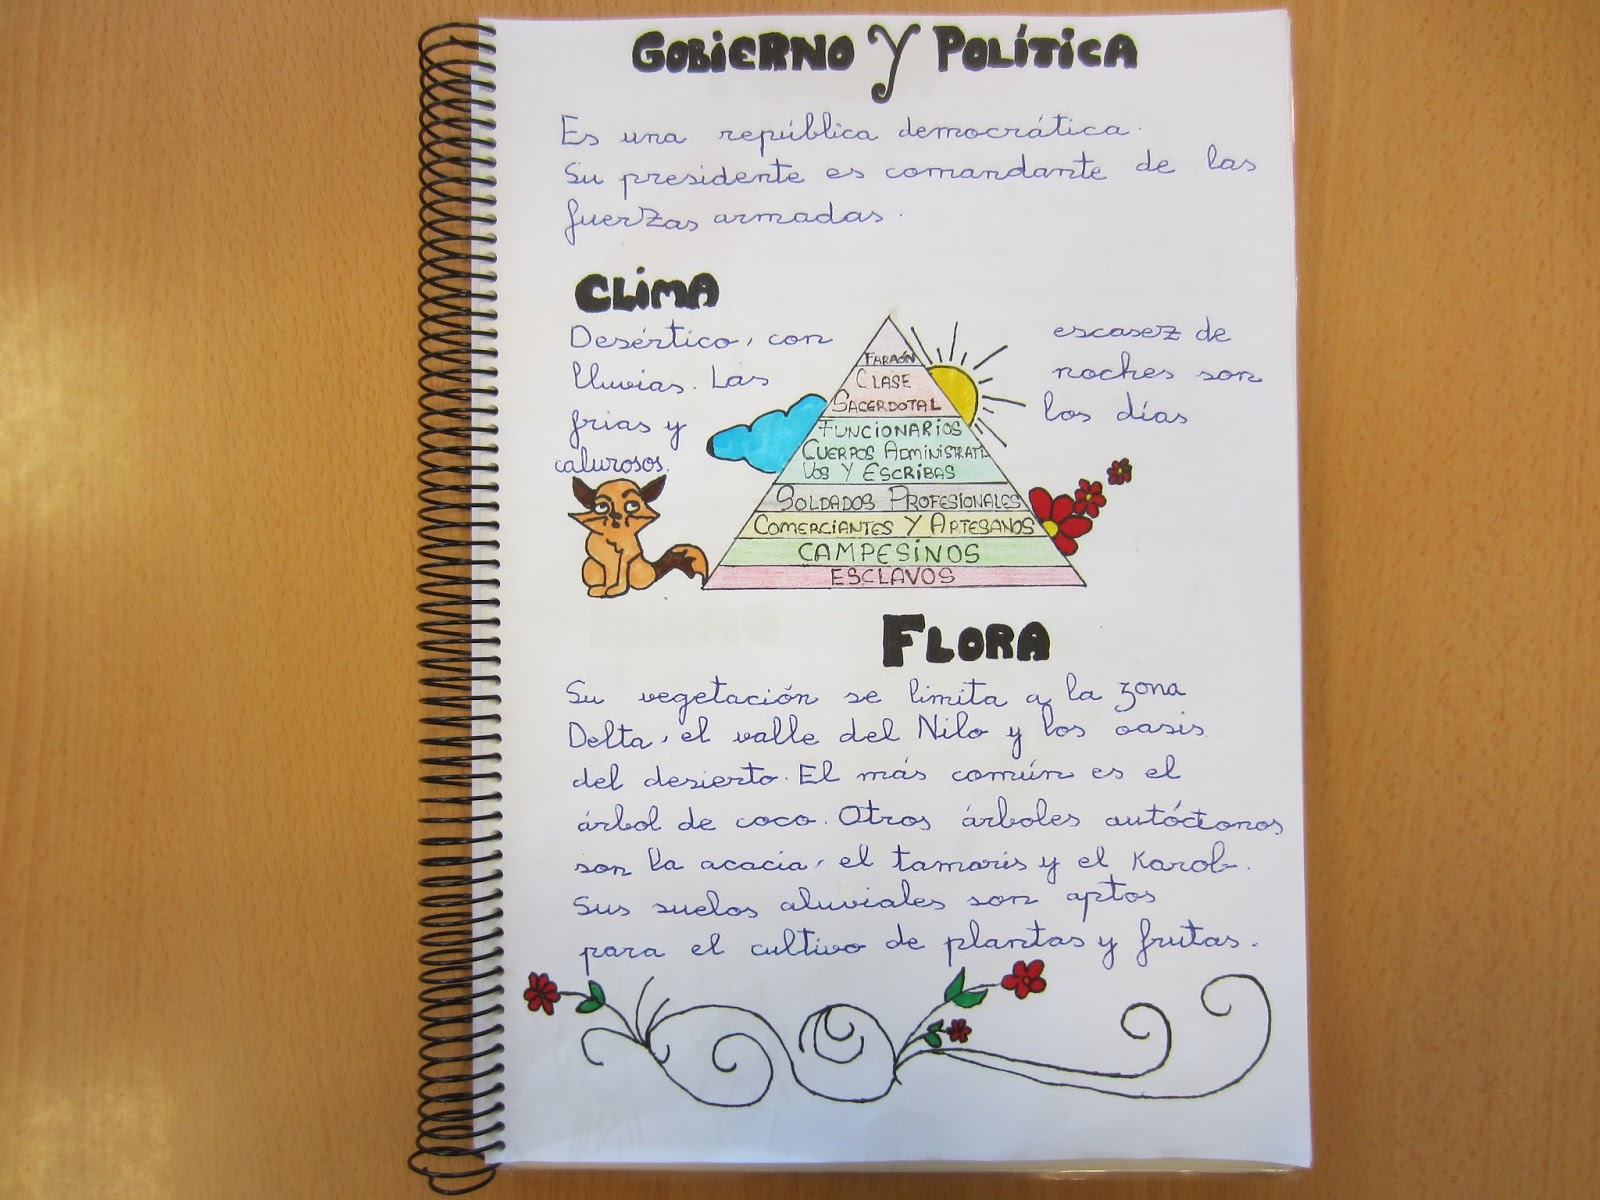 GOBIERNO Y POLÍTICA
Es una república democrática.
Su presidente es comandante de las
fuerzas armadas.
CLIMA
Desértico, con escasez de
lluvias. Las noches son
frias y los días
calurosos.
FARAÓN
CLASE
SACERDOTAL
FUNCIONARIOS
CUERPOS ADMINISTRATI-
VOS Y ESCRIBAS
SOLDADOS PROFESIONALES
COMERCIANTES Y ARTESANOS
CAMPESINOS
ESCLAVOS
FLORA
Su vegetación se limita a la zona
Delta, el valle del Nilo y los oasis
del desierto. El más común es el
árbol de coco. Otros árboles autóctonos
son la acacia, el tamaris y el Karob.
Sus suelos aluviales son aptos
para el cultivo de plantas y frutas.